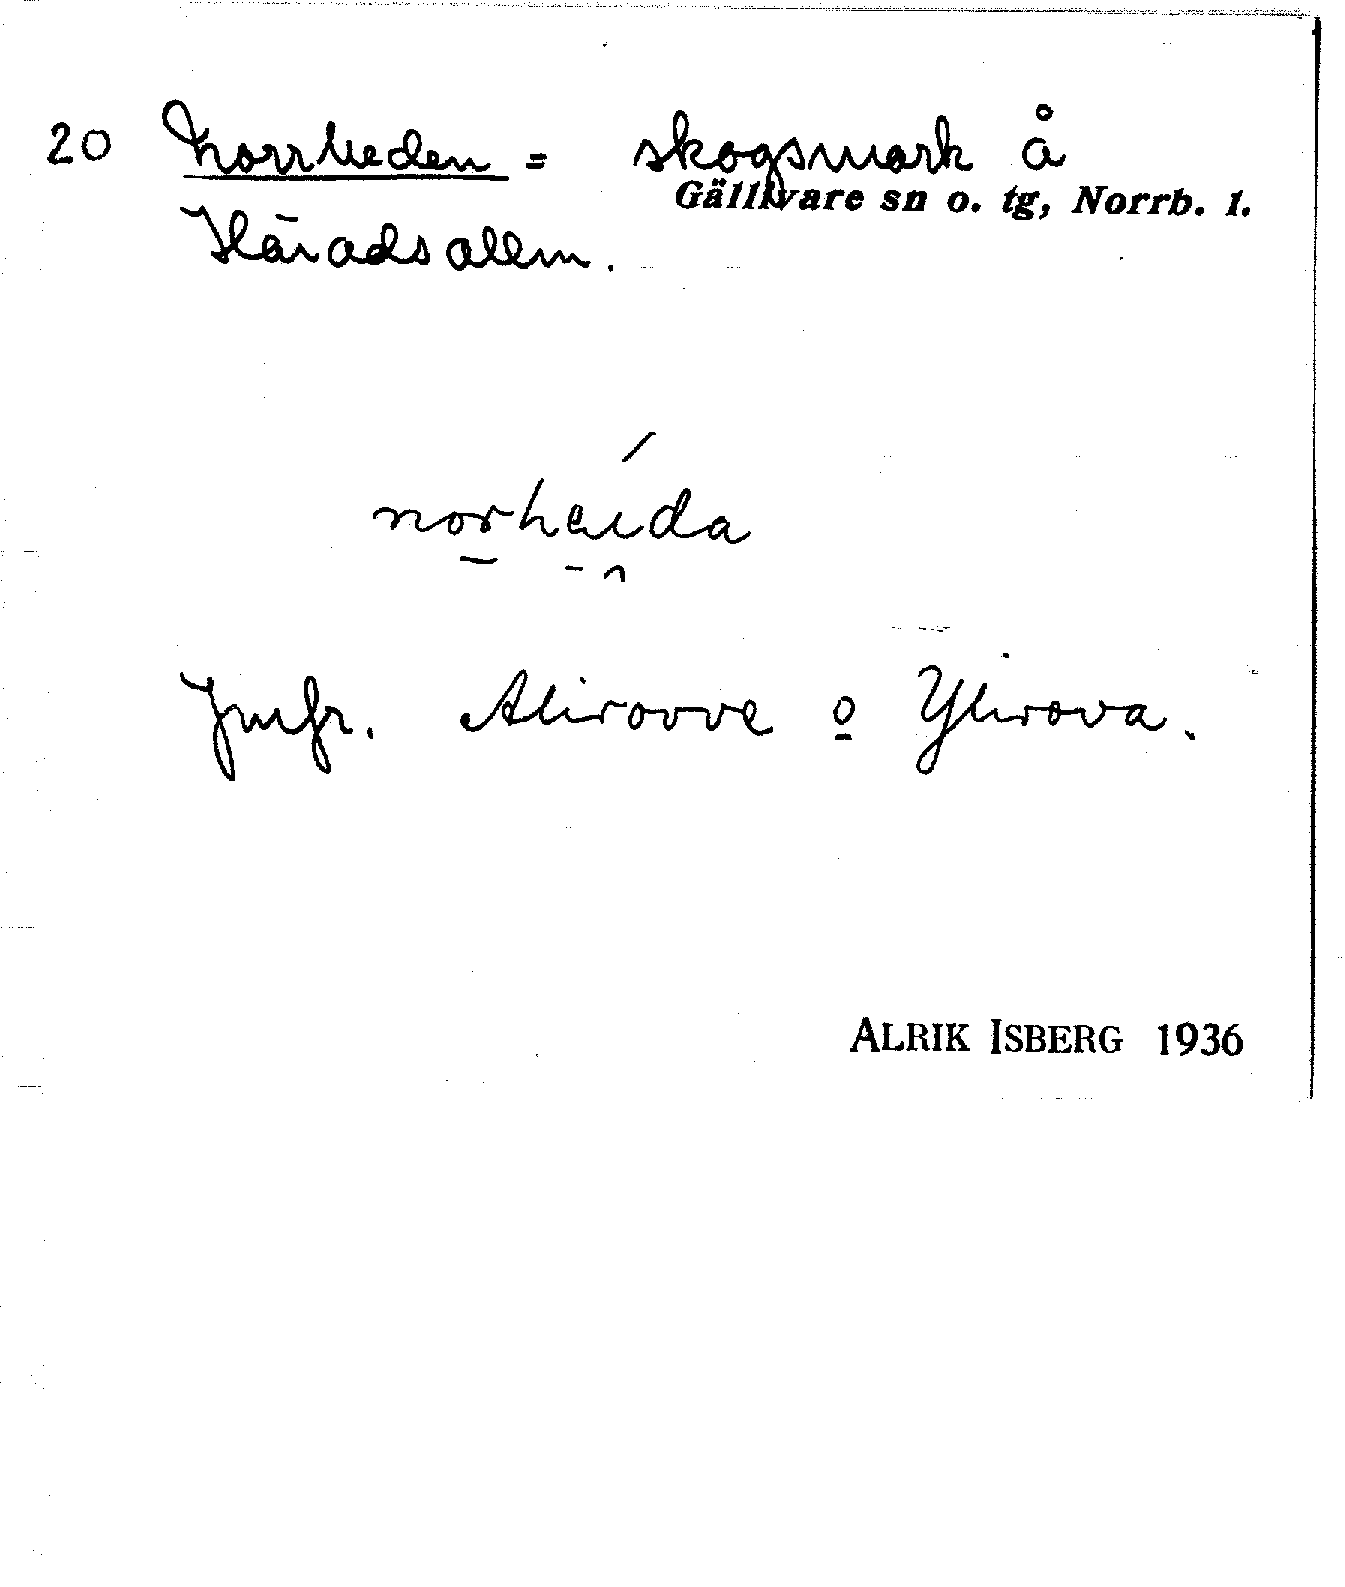 20 Norrheden = skogsmark å
Gällivare sn o. tg, Norrb. l.
Häradsallm.
norhei̯da
Jmfr. Alirovve o Ylirova.
ALRIK ISBERG 1936